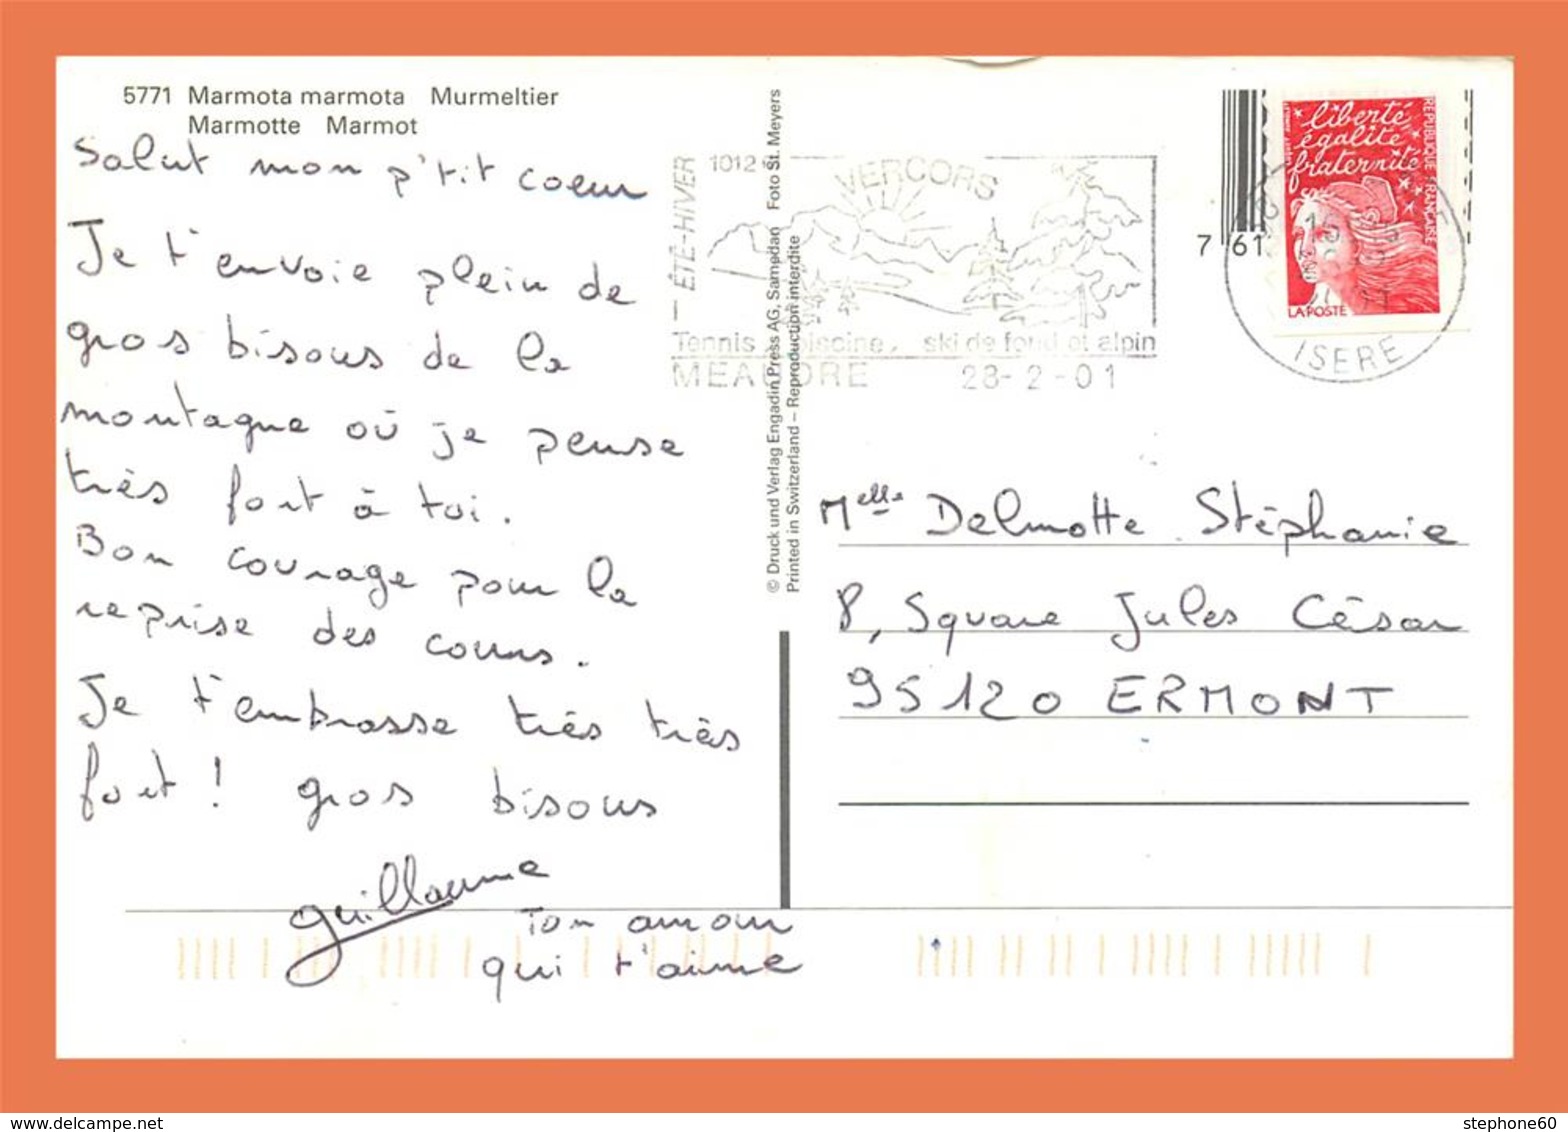 5771 Marmota marmota Murmeltier
Marmotte Marmot
Salut mon p'tit coeur
Je t'envoie plein de
gros bisous de la
montagne où je pense
très fort à toi.
Bon courage pour la
reprise des cours.
Je t'embrasse très très
fort ! gros bisous
guillaume
Ton amour
qui t'aime
© Druck und Verlag Engadin Press AG, Samedan Foto St. Meyers
Printed in Switzerland – Reproduction interdite
ÉTÉ-HIVER
1012
VERCORS
Tennis, piscine, ski de fond et alpin
MEAUDRE 28-2-01
7 61
liberté
égalité
fraternité
RÉPUBLIQUE FRANÇAISE
LA POSTE
ISERE
Melle Delmotte Stéphanie
8, Square Jules César
95120 ERMONT
stephone60